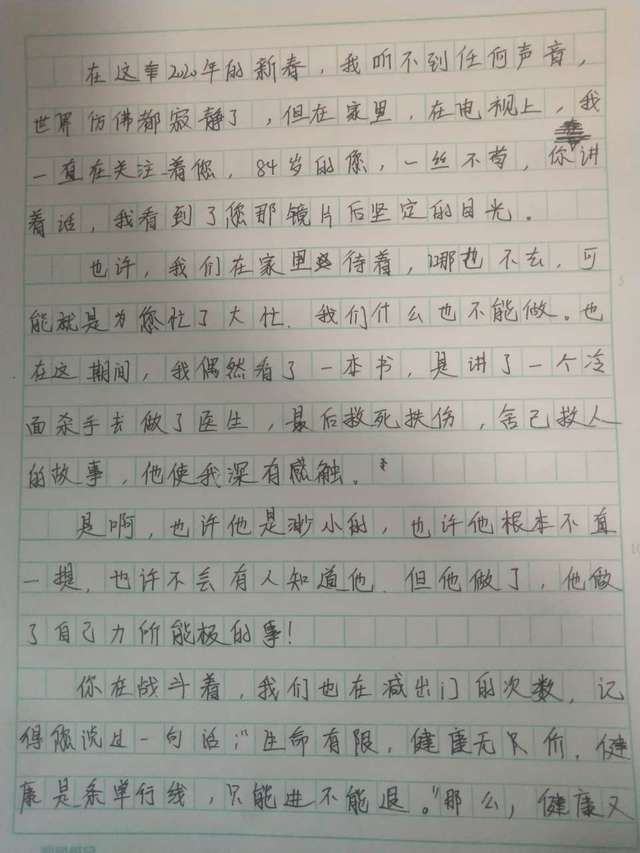 在这年2020年的新春，我听不到任何声音，
世界仿佛都寂静了，但在家里，在电视上，我
一直在关注着您，84岁的您，一丝不苟，你讲
着话，我看到了您那镜片后坚定的目光。
也许，我们在家里待着，哪也不去，可
能就是为您忙了大忙．我们什么也不能做。也
在这期间，我偶然看了一本书，是讲了一个冷
面杀手去做了医生，最后救死扶伤，舍己救人
的故事，他使我深有感触。
是啊，也许他是渺小的，也许他根本不直
一提，也许不会有人知道他．但他做了，他做
了自己力所能极的事！
你在战斗着，我们也在减出门的次数，记
得您说过一句话：“生命有限，健康无价，健
康是条单行线，只能进不能退。”那么，健康又